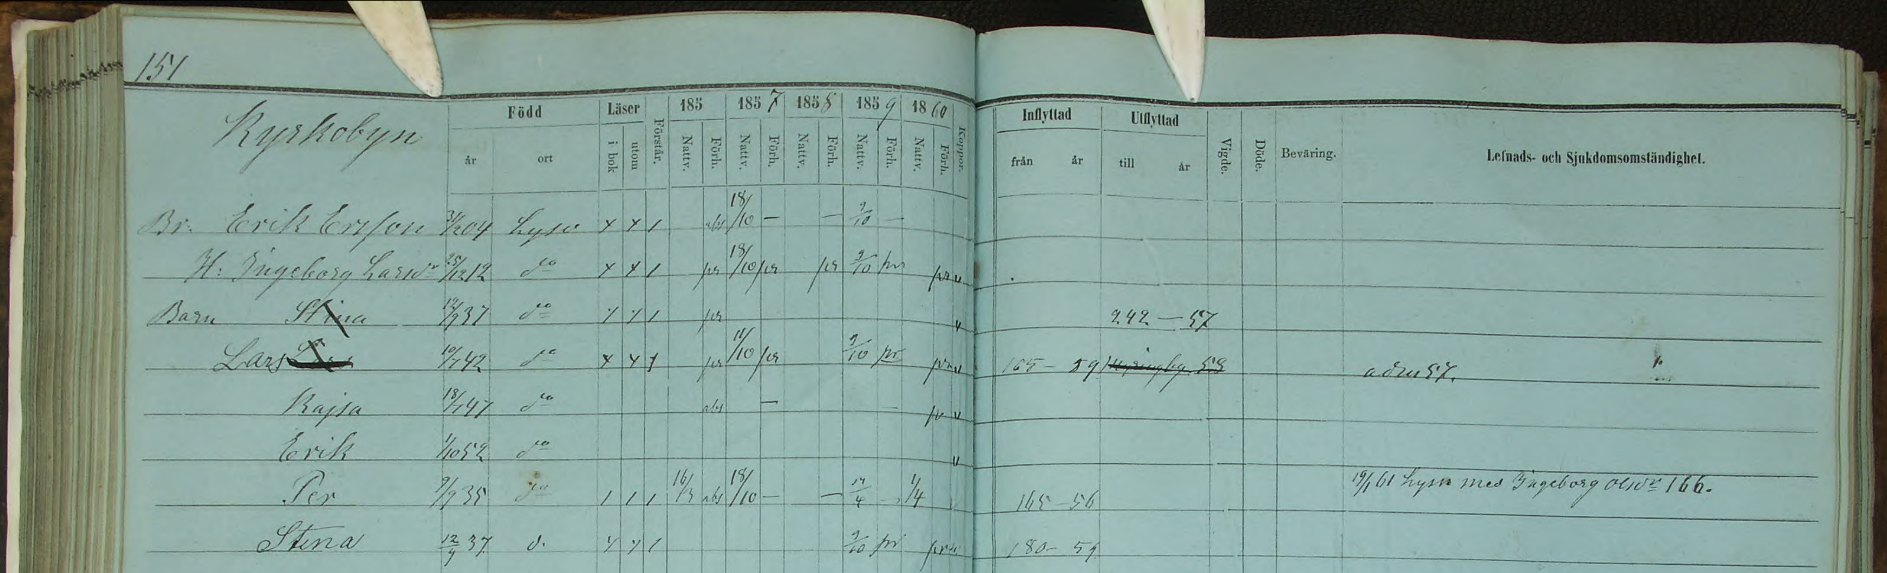 151
Kyrkobyn
Född
Läser
185
1857
1858
1859
1860
Koppor.
Inflyttad
Utflyttad
Vigde.
Döde.
Beväring.
Lefnads- och Sjukdomsomständighet.
år
ort
i bok
utom
Förstår.
Nattv.
Förh.
Nattv.
Förh.
Nattv.
Förh.
Nattv.
Förh.
Nattv.
Förh.
från
år
till
år
Br. Erik Ersson 04 Lyso x x / abs 18/10 — — 9/10 —
H: Ingeborg Larsdr 25/12 12 do x x / pr 18/10 pr pr 9/10 pr pr v
Barn Stina 12/9 37 do / pr v 242 — 57
Lars 10/7 42 do x x / pr 11/10 pr 9/10 pr pr v 165 — 59 58 adm 57.
Kajsa 18/1 47 do abs — v
Erik 1/10 52 do v
Per 9/9 35 do / / / 16/3 abs 18/10 — — 17/4 1/4 165 — 56 19/1 61 Lysn med Ingeborg Olsdr 166.
Stina 12/9 37 d. / 9/10 pr pr 180 — 59